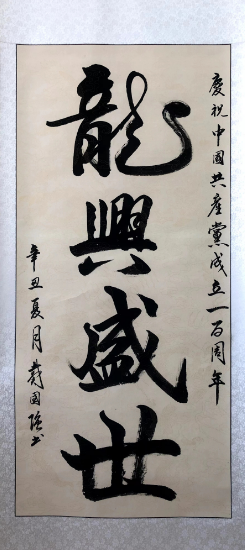 慶祝中國共產黨成立一百周年
龍興盛世
辛丑夏月戴國强书